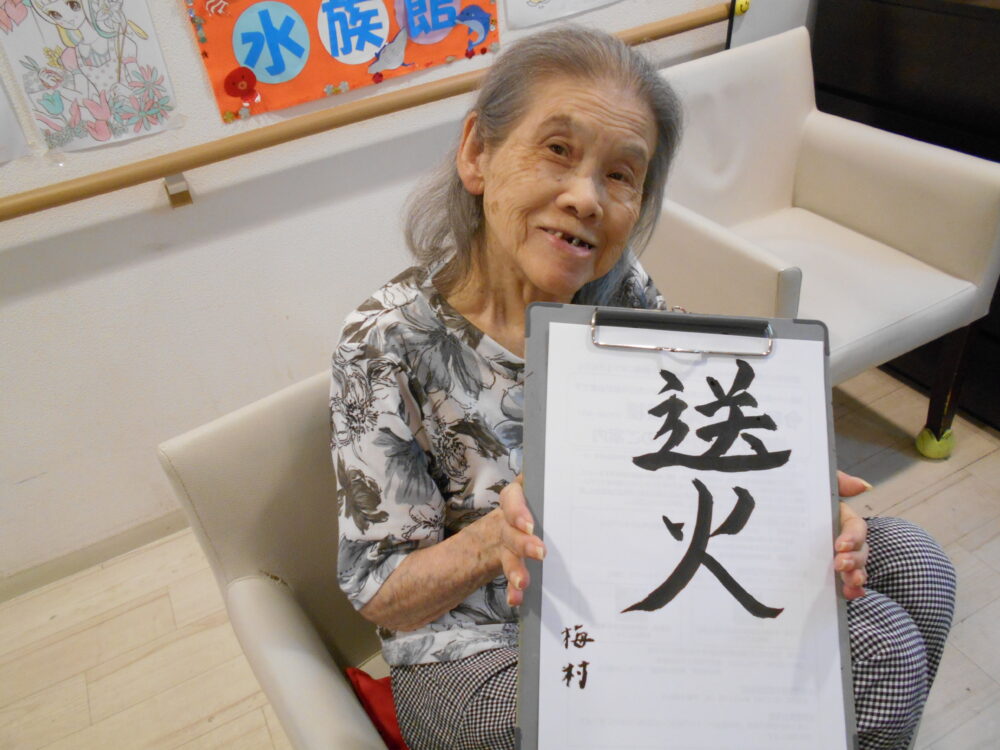 水族館
送火
梅村